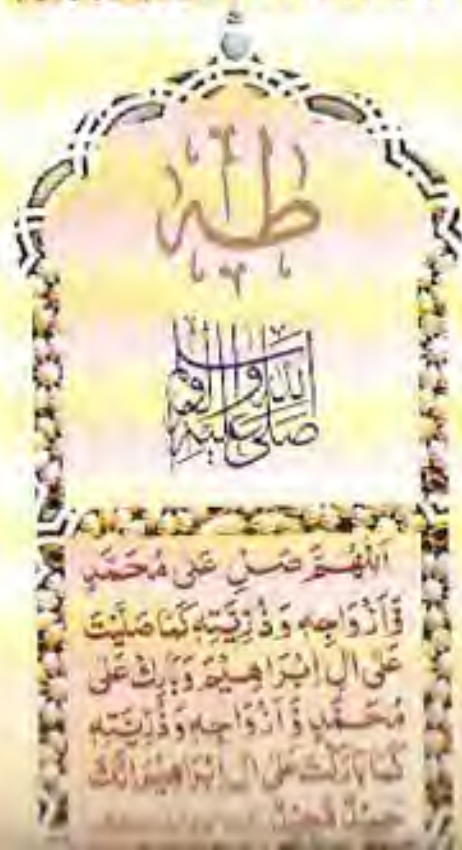 طٰهٰ
صلى الله عليه واله وسلم
اَللّٰهُمَّ صَلِّ عَلٰى مُحَمَّدٍ
وَّاَزْوَاجِهٖ وَذُرِّيَّتِهٖ كَمَا صَلَّيْتَ
عَلٰى اٰلِ اِبْرَاهِيْمَ وَبَارِكْ عَلٰى
مُحَمَّدٍ وَّاَزْوَاجِهٖ وَذُرِّيَّتِهٖ
كَمَا بَارَكْتَ عَلٰى اٰلِ اِبْرَاهِيْمَ اِنَّكَ
حَمِيْدٌ مَّجِيْدٌ